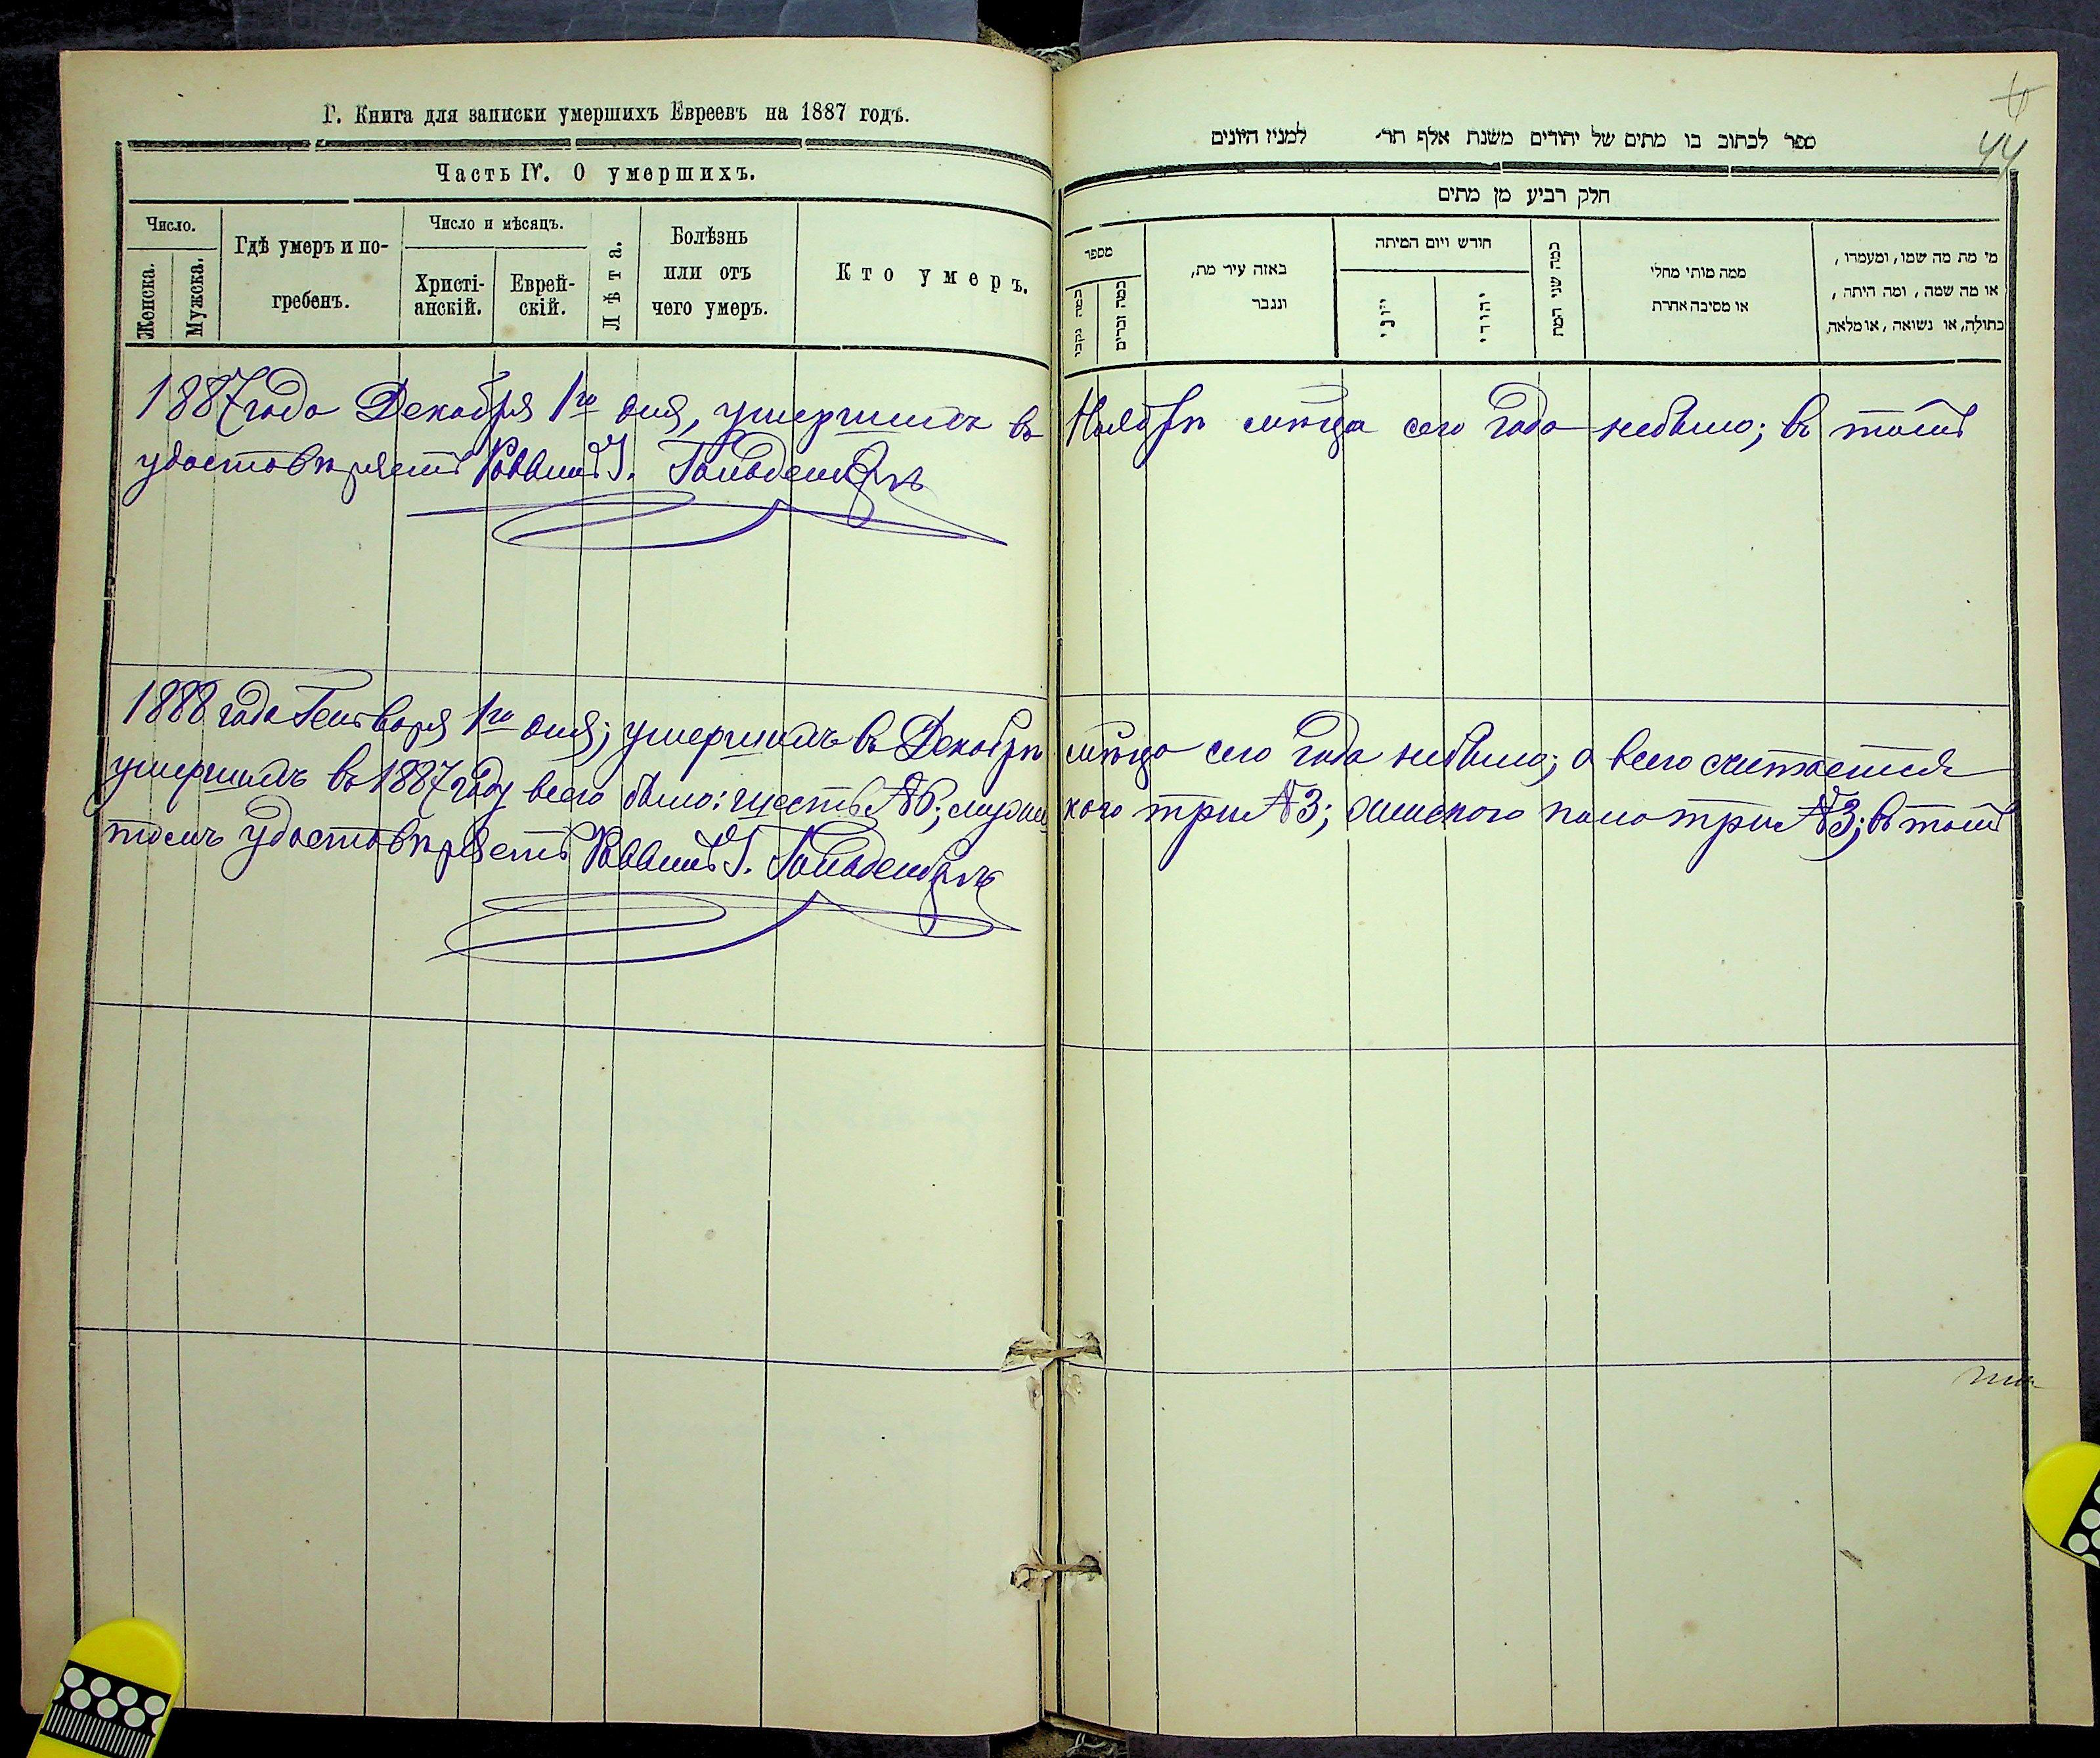 Г. Книга для записки умершихъ Евреевъ на 1887 годъ.
Часть IV. О умершихъ.
Число.
Женска.
Мужска.
Гдѣ умеръ и по-
гребенъ.
Число и мѣсяцъ.
Христі-
анскій.
Еврей-
скій.
Лѣта.
Болѣзнь
или отъ
чего умеръ.
Кто умеръ.
ספר לכתוב בו מתים של יהודים משנת אלף תר׳ למנין היונים
44
חלק רביע מן מתים
מספר
כמה נקבי
כמה זכרים
באזה עיר מת,
ונגבר
חודש ויום המיתה
יוני
יהודי
כמה שני המת
ממה מותי מחלי
או מסיבה אחרת
מי מת מה שמו, ומעמדו,
או מה שמה, ומה היתה,
בתולה, או נשואה, או מלאה
1887 года Декабря 1го дня, умершихъ въ Ноябрѣ мѣсца сего года небыло; въ томъ
удостовѣряетъ Раввинъ І.
1888 года Генваря 1го дня; умершихъ въ Декабрѣ мѣсца сего года небыло; а всего считается
умершихъ въ 1887 году всего было: шесть №6; мужскаго три №3; женскаго пола три №3; въ томъ
томъ удостовѣряетъ Раввинъ І.